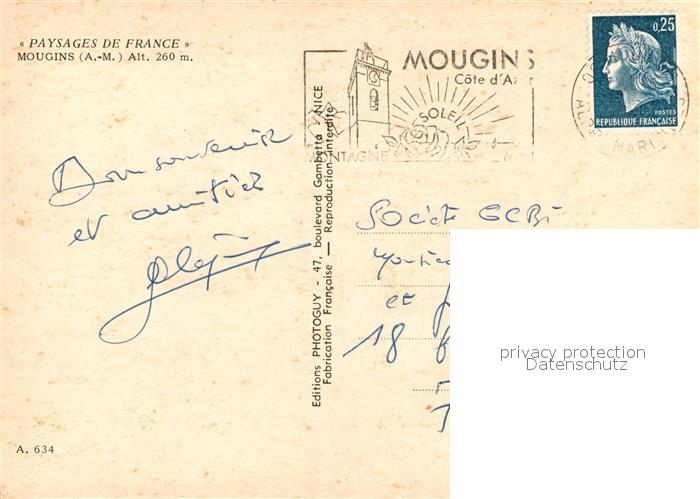 « PAYSAGES DE FRANCE »
MOUGINS (A.-M.) Alt. 260 m.
MOUGINS
Côte d'Azur
SOLEIL
MONTAGNE
0,25
POSTES
REPUBLIQUE FRANÇAISE
Bon souvenir
et amitiés
Editions PHOTOGUY - 47, boulevard Gambetta NICE
Fabrication Française — Reproduction interdite
Société
et
18
privacy protection
Datenschutz
A. 634